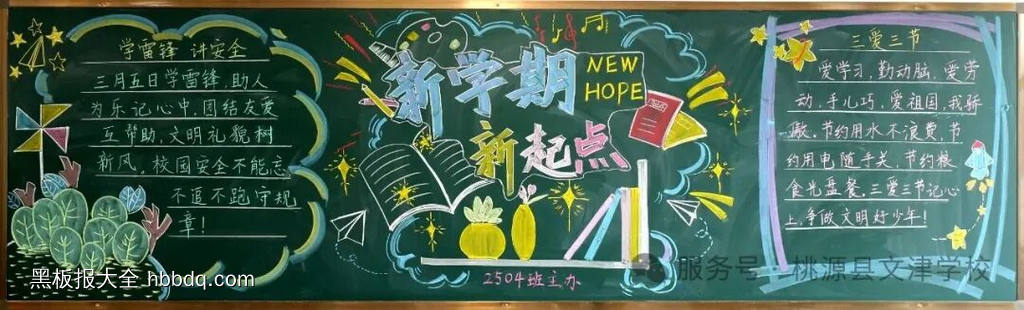 学雷锋 讲安全
三月五日学雷锋,助人
为乐记心中,团结友爱
互帮助,文明礼貌树
新风,校园安全不能忘
不追不跑守规
章!
新学期
NEW
HOPE
新起点
2504班主办
三爱三节
爱学习,勤动脑,爱劳
动,手儿巧,爱祖国,我骄
傲,节约用水不浪费,节
约用电随手关,节约粮
食光盘餐,三爱三节记心
上,争做文明好少年!
黑板报大全 hbbdq.com
服务号·桃源县文津学校